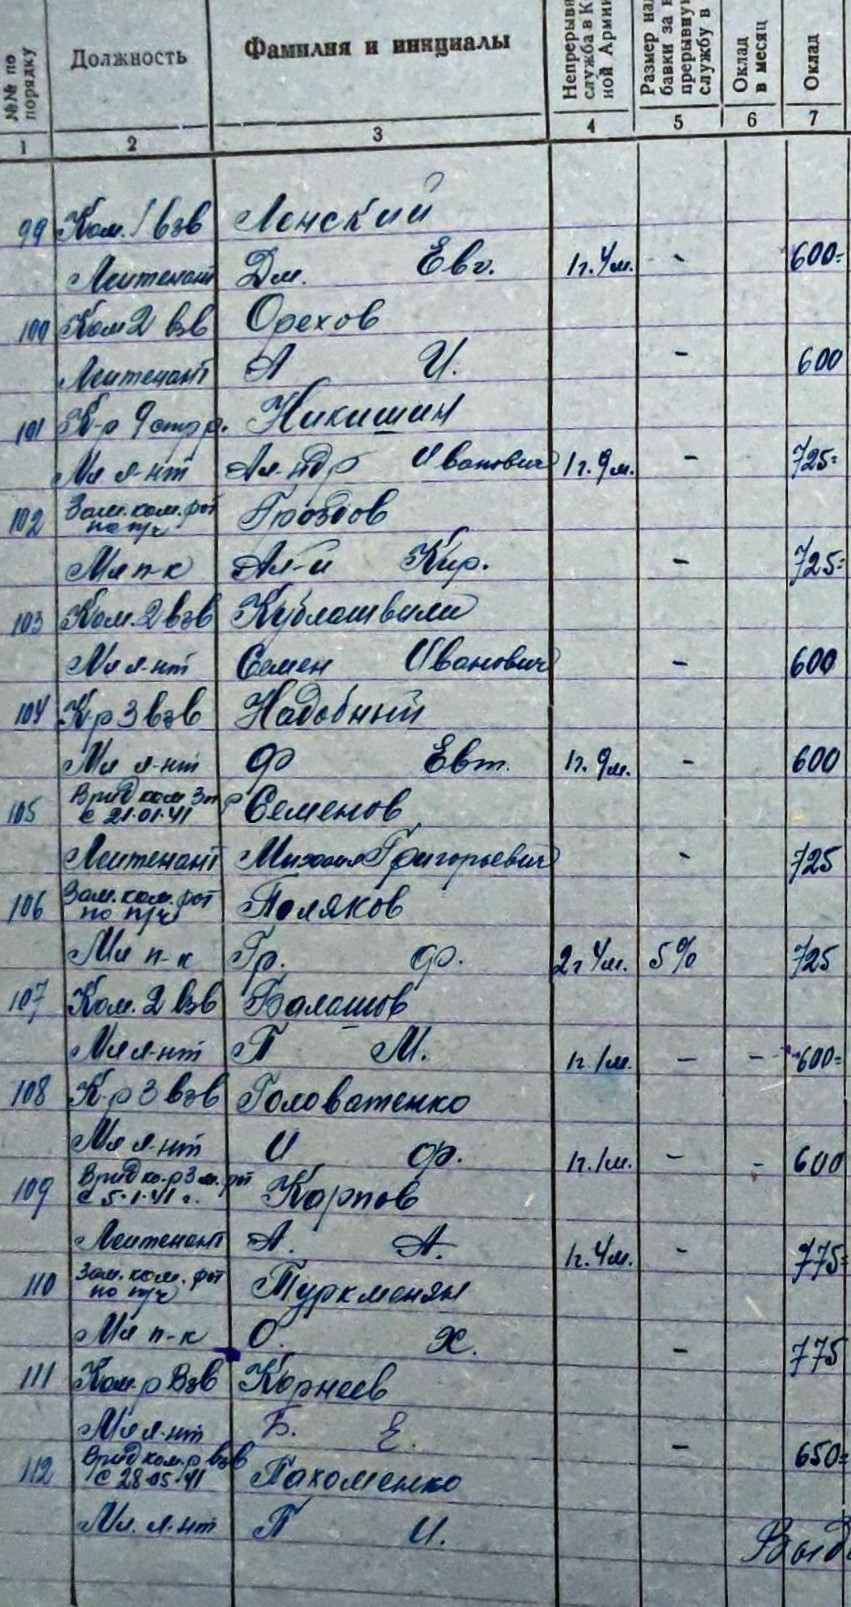 №№ по порядку Должность Фамилия и инициалы Непрерывн служба в К ной Арми Размер на бавки за прерывну службу в Оклад в месяц Оклад
1 2 3 4 5 6 7
99 Ком. 1 взв Ленский
Лейтенант Дм. Евг. 1г.4м. - 600=
100 Ком 2 взв Орехов
Лейтенант А И. - 600
101 К-р 9 стр р. Никишин
Мл л-нт Ал-ндр Иванович 1г.9м. - 725=
102 Зам. ком. рот по п/ч Гроздов
Мл п-к Ал-й Кир. - 725=
103 Ком. 2 взв Кублашвили
Мл л-нт Семен Иванович - 600
104 К-р 3 взв Надобный
Мл л-нт Ф Евт. 1г.9м. - 600
105 Врид ком 3 п р Семенов
с 21.01.41
Лейтенант Михаил Григорьевич - 725
106 Зам. ком. рот по п/ч Поляков
Мл п-к Гр. Ф. 2г 4м. 5% 725
107 Ком. 2 взв Балашов
Мл л-нт П М. 1г. 1м. - - 600=
108 К-р 3 взв Головатенко
Мл л-нт И Ф. 1г. 1м. - - 600
109 Врид ко-р 3 м. рт Карпов
с 5.1.41 г.
Лейтенант А. А. 1г. 4м. - 775=
110 Зам. ком. рот по п/ч Туркменян
Мл п-к О. Х. - 775
111 Ком-р взв Корнеев
Мл л-нт Б. Е. - 650=
112 Врид ком-р взв Пахоменко
с 28.05.41
Мл. л-нт П И. Выд